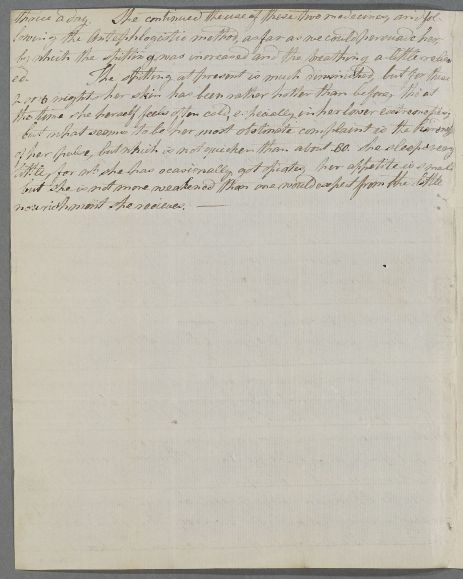 thrice a day. She continued the use of these two medecines and fol-
lowing the Antiphlogistic method, as far as we could persuade her,
by which the spitting was increased and the breathing a little reliev
ed. The spitting at present is much diminished, but for these
2 or 6 nights her skin has been rather hotter than before, tho at
the time she herself feels often cold, especially in her lower extremities,
but what seems to be her most obstinate complaint is the
of her pulse, but which is not quicker than about 80. she sleeps very
little, for wh. she has occasionally got opiates, her appetite is small
but she is not more weakened than one would expect from the little
nourishment she recieves. —